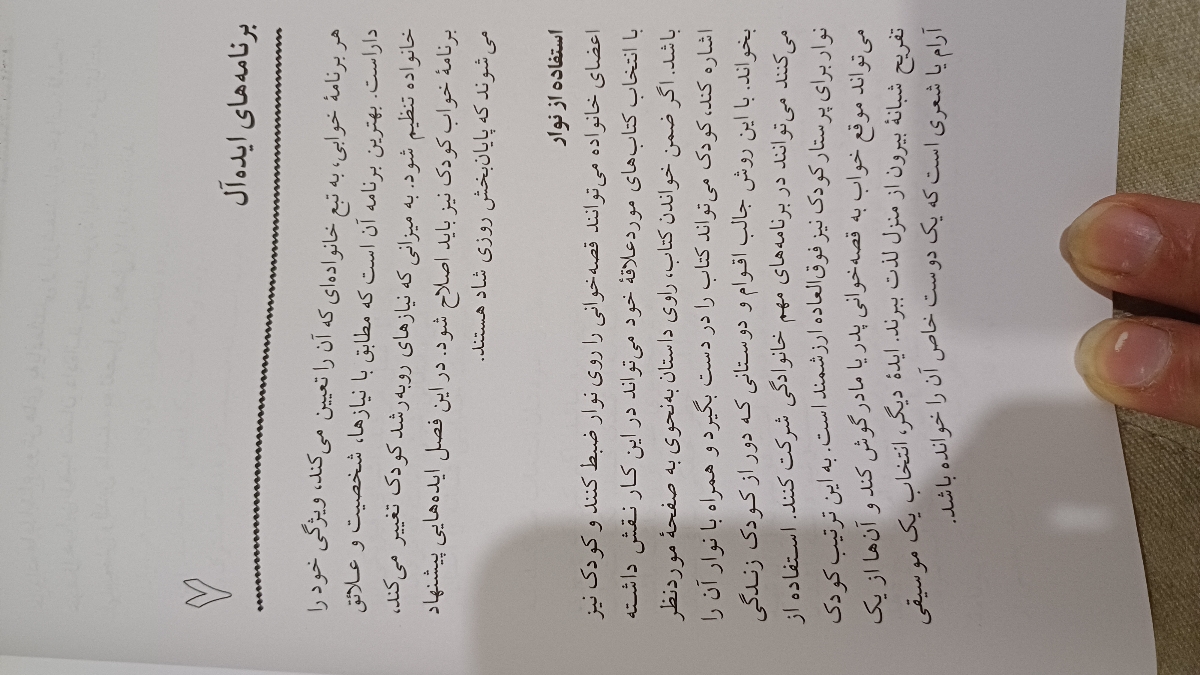 ۷
برنامه‌های ایده‌آل
هر برنامهٔ خوابی، به تبع خانواده‌ای که آن را تعیین می‌کند، ویژگی خود را
داراست. بهترین برنامه آن است که مطابق با نیازها، شخصیت و علائق
خانواده تنظیم شود. به میزانی که نیازهای روبه‌رشد کودک تغییر می‌کند،
برنامهٔ خواب کودک نیز باید اصلاح شود. در این فصل ایده‌هایی پیشنهاد
می‌شوند که پایان‌بخش روزی شاد هستند.
استفاده از نوار
اعضای خانواده می‌توانند قصه‌خوانی را روی نوار ضبط کنند و کودک نیز
با انتخاب کتاب‌های موردعلاقهٔ خود می‌تواند در این کار نقش داشته
باشد. اگر ضمن خواندن کتاب، راوی داستان به‌نحوی به صفحهٔ موردنظر
اشاره کند، کودک می‌تواند کتاب را در دست بگیرد و همراه با نوار آن را
بخواند. با این روش جالب اقوام و دوستانی که دور از کودک زندگی
می‌کنند می‌توانند در برنامه‌های مهم خانوادگی شرکت کنند. استفاده از
نوار برای پرستار کودک نیز فوق‌العاده ارزشمند است. به این ترتیب کودک
می‌تواند موقع خواب به قصه‌خوانی پدر یا مادر گوش کند و آن‌ها از یک
تفریح شبانهٔ بیرون از منزل لذت ببرند. ایدهٔ دیگر، انتخاب یک موسیقی
آرام یا شعری است که یک دوست خاص آن را خوانده باشد.